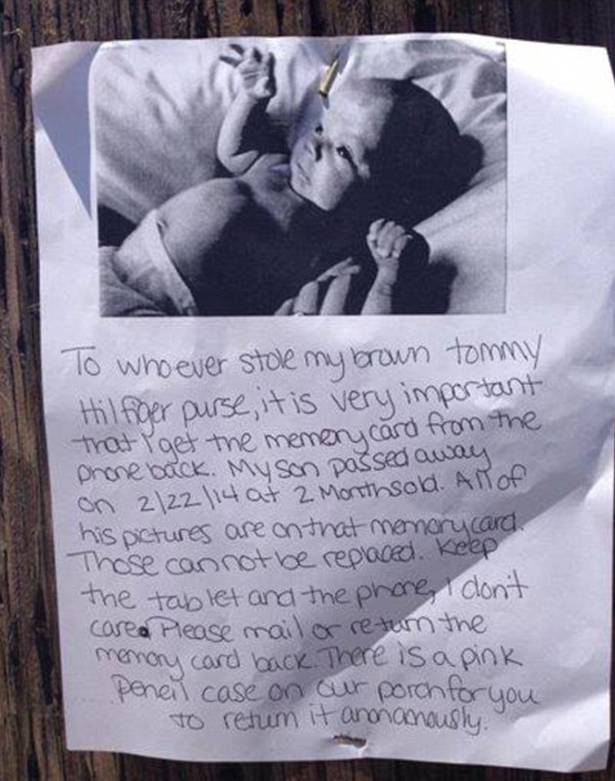 To whoever stole my brown tommy
Hilfiger purse, it is very important
that I get the memory card from the
phone back. My son passed away
on 2/22/14 at 2 Months old. All of
his pictures are on that memory card.
Those cannot be replaced. Keep
the tablet and the phone, I don't
care. Please mail or return the
memory card back. There is a pink
Pencil case on our porch for you
to return it anonamously.